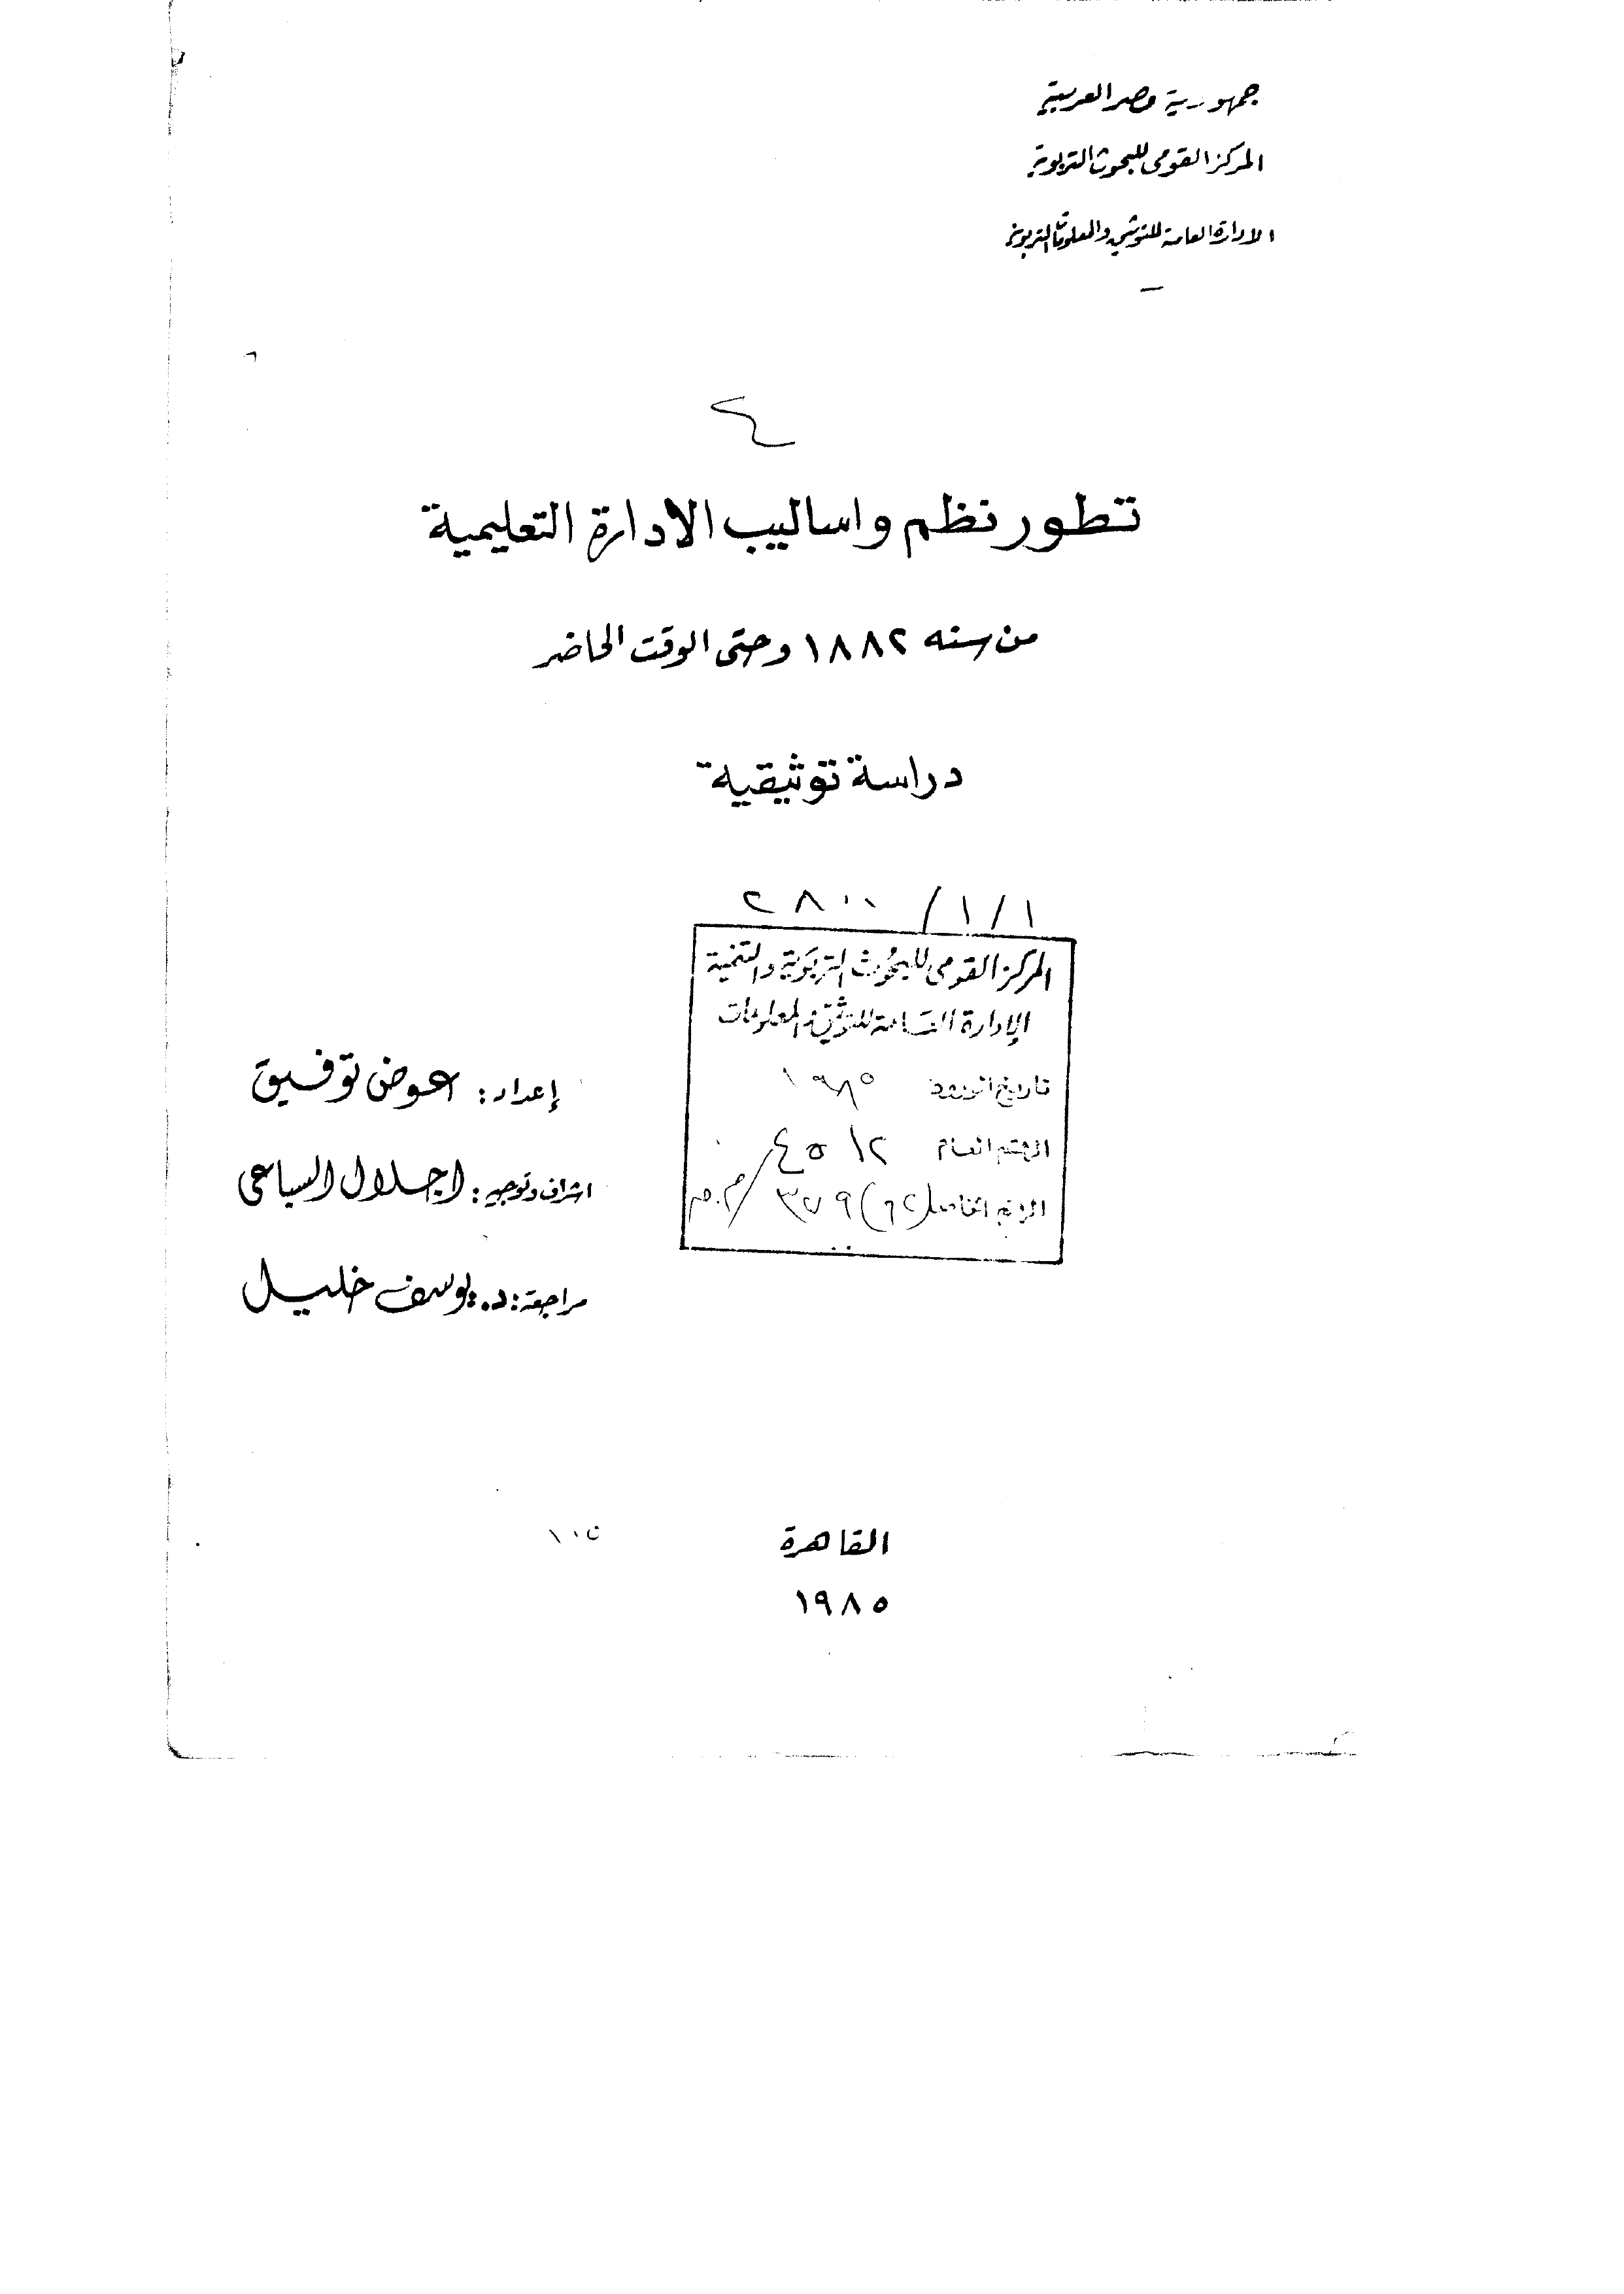 جمهورية مصر العربية
المركز القومى للبحوث التربوية
الادارة العامة للتوثيق والمعلومات التربوية
تطور نظم واساليب الادارة التعليمية
من سنه ١٨٨٢ وحتى الوقت الحاضر
دراسة توثيقية
١/١/ ٢٨٠٠
المركز القومى للبحوث التربوية والتنمية
الإدارة العامة للتوثيق والمعلومات
تاريخ الورود ١٩٨٥
الرقم العام ٤٥١٢
الرقم الخاص (٦٢) ٣٧٩
إعداد: عوض توفيق
اشراف وتوجيه: اجلال السباعى
مراجعة: د. يوسف خليل
القاهرة
١٩٨٥